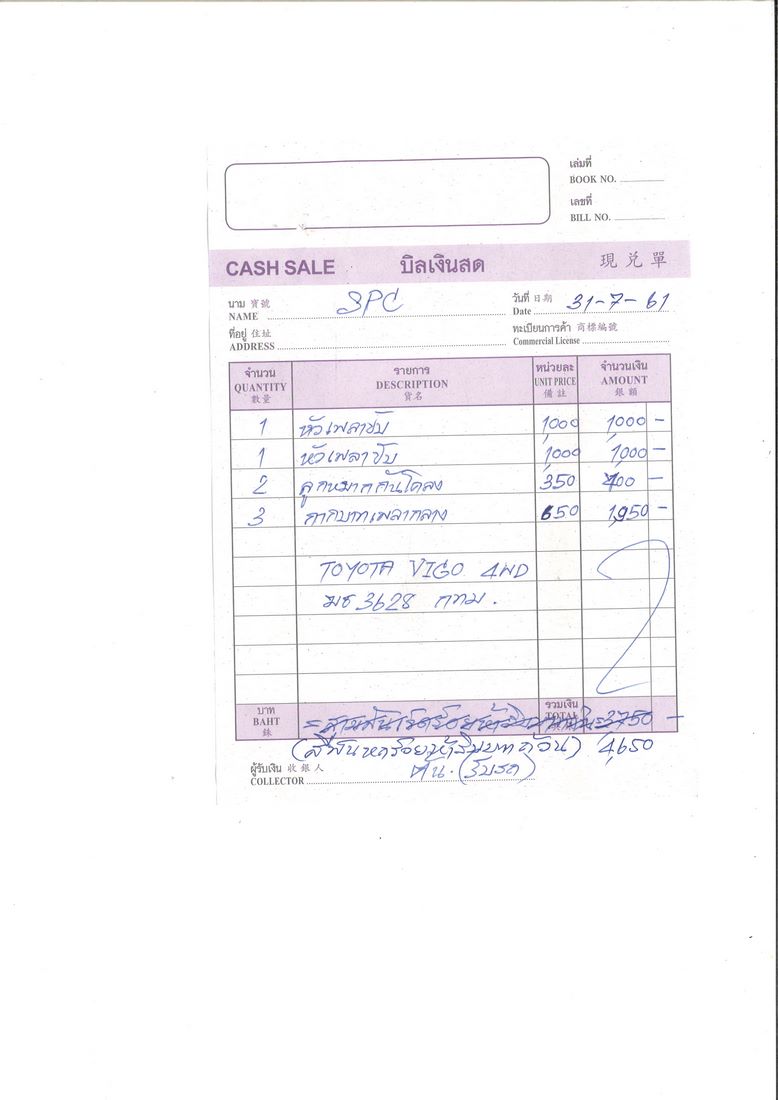 เล่มที่
BOOK NO.
เลขที่
BILL NO.
CASH SALE บิลเงินสด 現兌單
นาม 寶號 NAME SPC วันที่ 日期 Date 31-7-61
ที่อยู่ 住址 ADDRESS ทะเบียนการค้า 商標編號 Commercial License
จำนวน รายการ หน่วยละ จำนวนเงิน
QUANTITY DESCRIPTION UNIT PRICE AMOUNT
數量 貨名 備註 銀額
1 หัวเพลาขับ 1,000 1,000 –
1 หัวเพลาขับ 1,000 1,000 –
2 ลูกหมากกันโคลง 350 700 –
3 กากบาทเพลากลาง 650 1,950 –
TOYOTA VIGO 4WD
ฆธ 3628 กทม.
บาท รวมเงิน
BAHT TOTAL 3,750 –
銖
(สี่พันหกร้อยห้าสิบบาทถ้วน) 4,650
ผู้รับเงิน 收銀人
COLLECTOR (รับรถ)